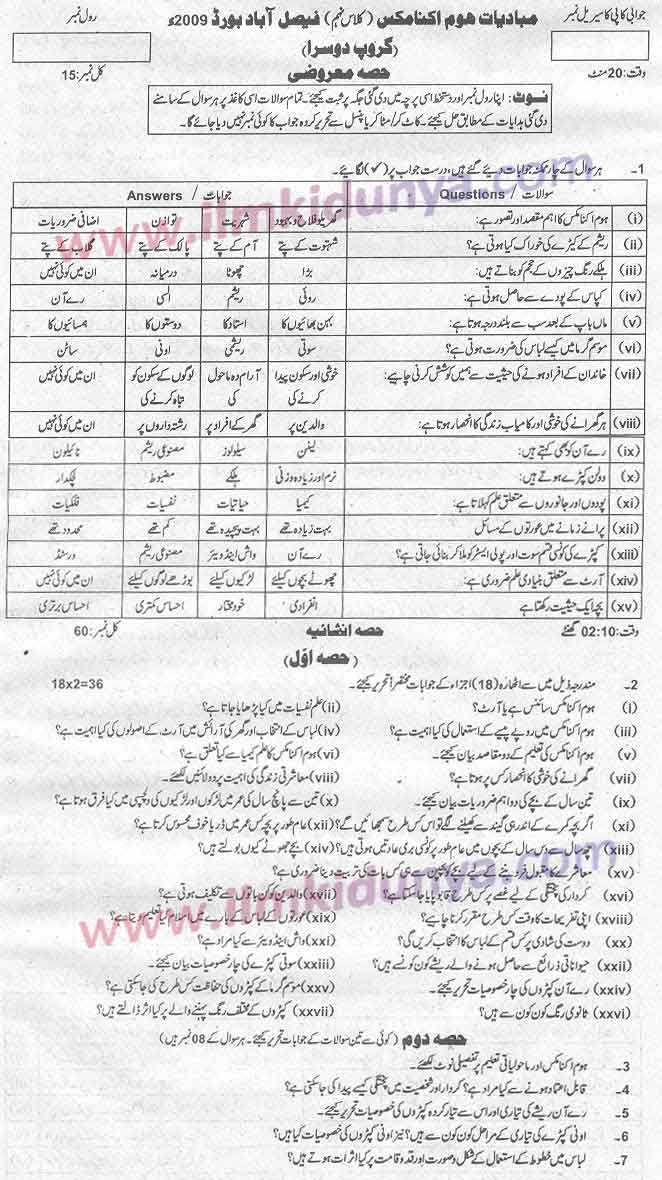 جوابی کاپی کا سیریل نمبر مبادیات ہوم اکنامکس (کلاس نہم) فیصل آباد بورڈ 2009ء رول نمبر
(گروپ دوسرا)
وقت:20 منٹ حصہ معروضی کل نمبر:15
نوٹ: اپنا رول نمبر اور دستخط اسی پرچہ میں دی گئی جگہ پر ثبت کیجئے۔ تمام سوالات اسی کاغذ پر ہر سوال کے سامنے
دی گئی ہدایات کے مطابق حل کیجئے۔ کاٹ کر/مٹا کر یا پنسل سے تحریر کردہ جواب کا کوئی نمبر نہیں دیا جائے گا۔
1- ہر سوال کے چار ممکنہ جوابات دیے گئے ہیں، درست جواب پر (✓) لگائیے۔
سوالات / Questions جوابات / Answers
(i) ہوم اکنامکس کا اہم مقصد اور تصور ہے: گھریلو فلاح و بہبود شہریت توازن اضافی ضروریات
(ii) ریشم کے کیڑے کی خوراک کیا ہوتی ہے؟ شہتوت کے پتے آم کے پتے پالک کے پتے گلاب کے پتے
(iii) ہلکے رنگ چیزوں کے حجم کو بناتے ہیں: بڑا چھوٹا درمیانہ ان میں کوئی نہیں
(iv) کپاس کے پودے سے حاصل ہوتی ہے: روئی ریشم السی رے آن
(v) ماں باپ کے بعد سب سے بلند درجہ ہوتا ہے: بہن بھائیوں کا استاد کا دوستوں کا ہمسائیوں کا
(vi) موسم گرما میں کیسے لباس کی ضرورت ہوتی ہے؟ سوتی ریشمی اونی ساٹن
(vii) خاندان کے افراد ہونے کی حیثیت سے ہمیں کوشش کرنی چاہیے: خوشی اور سکون پیدا کرنے کی آرام دہ ماحول کی لوگوں کے سکون کو تباہ کرنے کی ان میں کوئی نہیں
(viii) ہر گھرانے کی خوشی اور کامیاب زندگی کا انحصار ہوتا ہے: والدین پر گھر کے افراد پر رشتہ داروں پر ان میں کوئی نہیں
(ix) رے آن کو بھی کہتے ہیں: لینن سیلولوز مصنوعی ریشم نائیلون
(x) وولن کپڑے ہوتے ہیں: نرم اور زیادہ وزنی ہلکے مضبوط لچکدار
(xi) پودوں اور جانوروں سے متعلق علم کہلاتا ہے: کیمیا حیاتیات نفسیات فلکیات
(xii) پرانے زمانے میں عورتوں کے مسائل بہت زیادہ تھے بہت پیچیدہ تھے کم تھے محدود تھے
(xiii) کپڑے کی کونسی قسم سوت اور پولی ایسٹر کو ملا کر بنائی جاتی ہے؟ رے آن واش اینڈ ویئر مصنوعی ریشم ورسٹڈ
(xiv) آرٹ سے متعلق بنیادی علم ضروری ہے: چھوٹے بچوں کیلئے لڑکیوں کیلئے بوڑھے لوگوں کیلئے ان میں کوئی نہیں
(xv) بچہ ایک حیثیت رکھتا ہے انفرادی خود مختار احساس کمتری احساس برتری
وقت:02:10 گھنٹے حصہ انشائیہ کل نمبر:60
(حصہ اوّل)
2- مندرجہ ذیل میں سے اٹھارہ (18) اجزاء کے جوابات مختصراً تحریر کیجئے۔ 18x2=36
(i) ہوم اکنامکس سائنس ہے یا آرٹ؟ (ii) علم نفسیات میں کیا پڑھایا جاتا ہے؟
(iii) ہوم اکنامکس میں روپے پیسے کے استعمال کی کیا اہمیت ہے؟ (iv) لباس کے انتخاب اور گھر کی آرائش میں آرٹ کے اصولوں کی کیا اہمیت ہے؟
(v) ہوم اکنامکس کی تعلیم کے دو مقاصد بیان کیجئے۔ (vi) ہوم اکنامکس کا علم کیمیا سے کیا تعلق ہے؟
(vii) گھرانے کی خوشی کا انحصار کس پر ہوتا ہے؟ (viii) معاشرتی زندگی کی اہمیت پر دو لائنیں لکھئے۔
(ix) تین سال کے بچے کی دو اہم ضروریات بیان کیجئے۔ (x) تین سے پانچ سال کی عمر میں لڑکوں اور لڑکیوں کی دلچسپی میں کیا فرق ہوتا ہے؟
(xi) اگر بچہ کمرے کے اندر ہی گیند سے کھیلنے لگے تو اس کس طرح سمجھائیں گے؟ (xii) عام طور پر بچہ کس عمر میں ڈر یا خوف محسوس کرتا ہے؟
(xiii) چھ سال سے دس سال کے بچوں میں عام طور پر کونسی بری عادتیں ہوتی ہیں؟ (xiv) بچے جھوٹ کیوں بولتے ہیں؟
(xv) معاشرے کا مقبول فرد بننے کے لیے بچے کو بچپن سے ہی کس بات کی تربیت دینا ضروری ہے؟
(xvi) کردار کی پختگی کے لیے غصے پر کس طرح قابو پایا جا سکتا ہے؟ (xvii) والدین کو کن باتوں سے تکلیف ہوتی ہے؟
(xviii) اپنی تفریحات کا وقت کس طرح مقرر کرنا چاہیے؟ (xix) عورتوں کے لباس کے بارے میں اسلام کیا تعلیم دیتا ہے؟
(xx) دوست کی شادی پر کس قسم کے لباس کا انتخاب کریں گی؟ (xxi) واش اینڈ ویئر سے کیا مراد ہے؟
(xxii) حیواناتی ذرائع سے حاصل ہونے والے ریشے کون کونسے ہیں؟ (xxiii) سوتی کپڑے کی چار خصوصیات بیان کیجئے۔
(xxiv) رے آن کپڑوں کی چار خصوصیات تحریر کیجئے۔ (xxv) موسم گرما کے کپڑوں کی حفاظت کس طرح کی جا سکتی ہے؟
(xxvi) ثانوی رنگ کون کون سے ہیں؟ (xxvii) کپڑوں کے مختلف رنگ پہننے والے پر کیا اثر ڈالتے ہیں؟
حصہ دوم (کوئی سے تین سوالات کے جوابات تحریر کیجئے۔ ہر سوال کے 08 نمبر ہیں)
3- ہوم اکنامکس اور ماحولیاتی تعلیم پر تفصیلی نوٹ لکھئے۔
4- قابل اعتماد ہونے سے کیا مراد ہے؟ کردار اور شخصیت میں پختگی کیسے پیدا کی جا سکتی ہے؟
5- رے آن ریشے کی تیاری اور اس سے تیار کردہ کپڑوں کی خصوصیات تحریر کیجئے۔
6- اونی کپڑے کی تیاری کے مراحل کون کون سے ہیں؟ نیز اونی کپڑوں کی خصوصیات کیا ہیں؟
7- لباس میں خطوط کے استعمال کے شکل و صورت اور قد و قامت پر کیا اثرات ہوتے ہیں؟
www.ilmkidunya.com
www.ilmkidunya.com